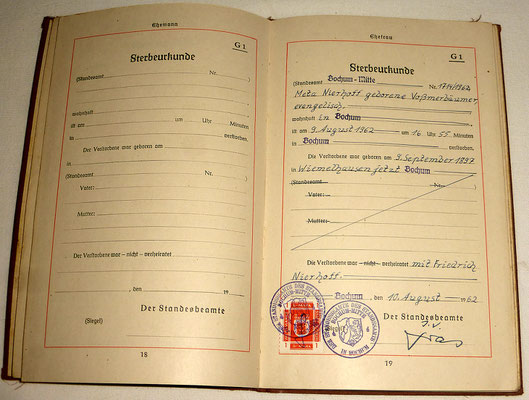 Ehemann
G 1
Sterbeurkunde
(Standesamt Nr. )
wohnhaft
ist am um Uhr Minuten
in verstorben.
Der Verstorbene war geboren am
in
(Standesamt Nr. )
Vater:
Mutter:
Der Verstorbene war — nicht — verheiratet
, den 19
Der Standesbeamte
(Siegel)
18
Ehefrau
G 1
Sterbeurkunde
(Standesamt Bochum-Mitte Nr. 1714/1962
Meta Nierhoff geborene Voßmerbäumer
evangelisch
wohnhaft in Bochum
ist am 9. August 1962 um 16 Uhr 55 Minuten
in Bochum verstorben.
Die Verstorbene war geboren am 9. September 1897
in Wiemelhausen jetzt Bochum
(Standesamt Nr. )
Vater:
Mutter:
Die Verstorbene war — nicht — verheiratet mit Friedrich
Nierhoff
Bochum, den 10. August 1962
Der Standesbeamte
I.V.
BOCHUM-MITTE
IN BOCHUM
6
19